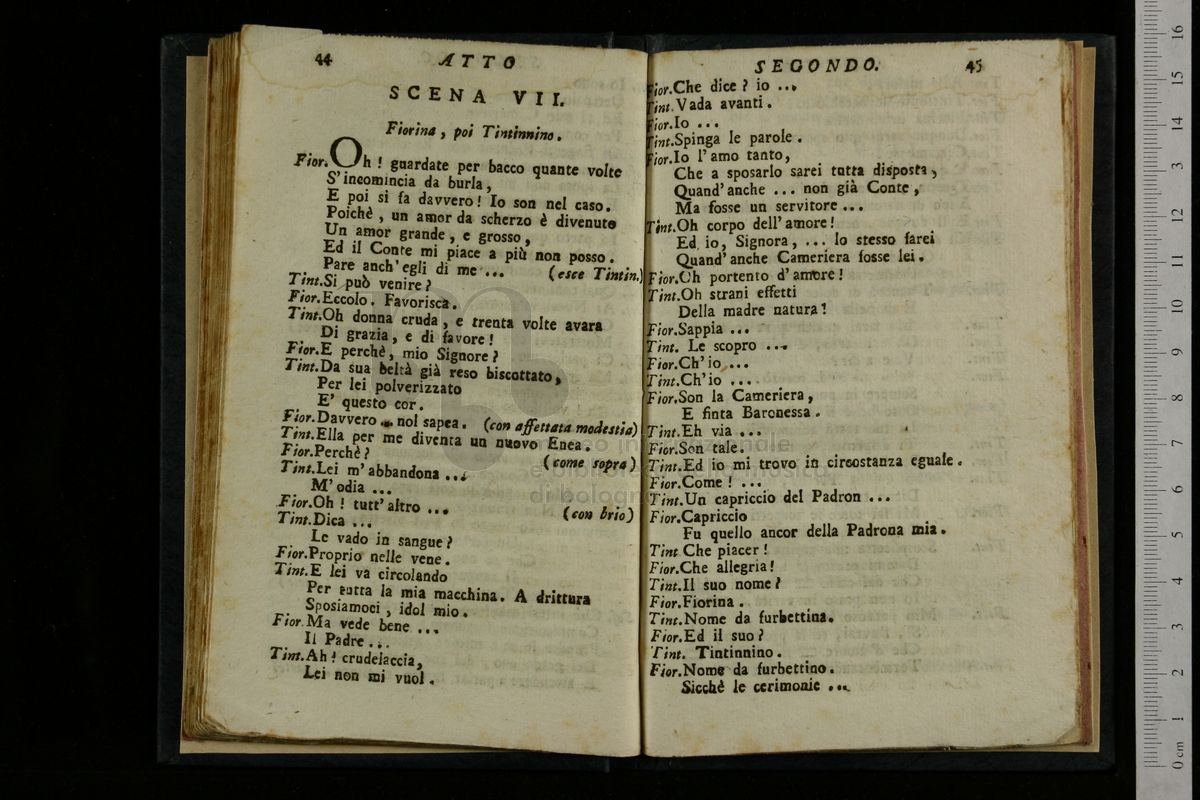 44 ATTO
SCENA VII.
Fiorina, poi Tintinnino.
Fior. Oh! guardate per bacco quante volte
S'incomincia da burla,
E poi si fa davvero! Io son nel caso.
Poichè, un amor da scherzo è divenuto
Un amor grande, e grosso,
Ed il Conte mi piace a più non posso.
Pare anch'egli di me ... (esce Tintin.)
Tint. Si può venire?
Fior. Eccolo. Favorisca.
Tint. Oh donna cruda, e trenta volte avara
Di grazia, e di favore!
Fior. E perchè, mio Signore?
Tint. Da sua beltà già reso biscottato,
Per lei polverizzato
E' questo cor.
Fior. Davvero .. nol sapea. (con affettata modestia)
Tint. Ella per me diventa un nuovo Enea.
Fior. Perchè? (come sopra)
Tint. Lei m'abbandona ...
M'odia ...
Fior. Oh! tutt'altro ... (con brio)
Tint. Dica ...
Le vado in sangue?
Fior. Proprio nelle vene.
Tint. E lei va circolando
Per tutta la mia macchina. A drittura
Sposiamoci, idol mio.
Fior. Ma vede bene ...
Il Padre ...
Tint. Ah! crudelaccia,
Lei non mi vuol.
SEGONDO. 45
Fior. Che dice? io ...
Tint. Vada avanti.
Fior. Io ...
Tint. Spinga le parole.
Fior. Io l'amo tanto,
Che a sposarlo sarei tutta disposta,
Quand'anche ... non già Conte,
Ma fosse un servitore ...
Tint. Oh corpo dell'amore!
Ed io, Signora, ... Io stesso farei
Quand'anche Cameriera fosse lei.
Fior. Oh portento d'amore!
Tint. Oh strani effetti
Della madre natura!
Fior. Sappia ...
Tint. Le scopro ...
Fior. Ch'io ...
Tint. Ch'io ...
Fior. Son la Cameriera,
E finta Baronessa.
Tint. Eh via ...
Fior. Son tale.
Tint. Ed io mi trovo in circostanza eguale.
Fior. Come! ...
Tint. Un capriccio del Padron ...
Fior. Capriccio
Fu quello ancor della Padrona mia.
Tint Che piacer!
Fior. Che allegria!
Tint. Il suo nome?
Fior. Fiorina.
Tint. Nome da furbettina.
Fior. Ed il suo?
Tint. Tintinnino.
Fior. Nome da furbettino.
Sicchè le cerimonie ...